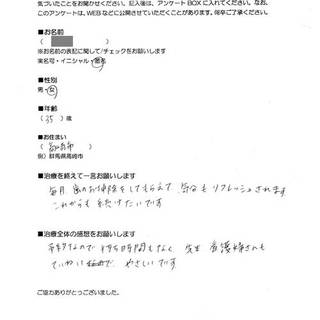 気づいたことをお聞かせください。記入後は、アンケートBOXに入れてください。なお、
このアンケートは、WEBなどに公開させていただくことがあります。何卒ご了承ください。
■お名前
( )
※お名前の表記に関して✓チェックをお願いします
実名可・イニシャル・匿名
■性別
男・女
■年齢
(35)歳
■お住まい
(高崎市)
例)群馬県高崎市
■治療を終えて一言お願いします
毎月 歯のお掃除をしてもらえて、気分も リフレッシュされます
これからも 続けたいです
■治療全体の感想をお願いします
予約なので 待ち時間もなく、先生 看護婦さんも
ていねいで、やさしいです
ご協力ありがとうございました。